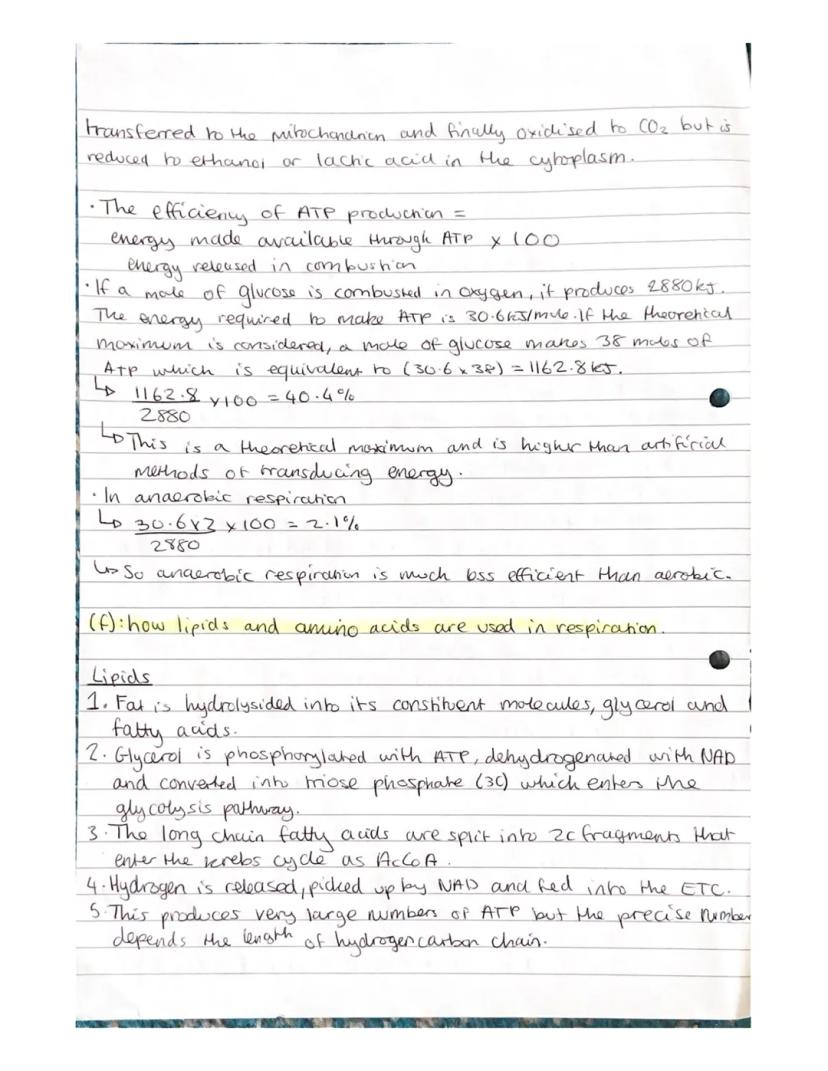 transferred to the mitochondrion and finally oxidised to CO₂ but is
reduced to ethanol or lactic acid in the cytoplasm.
· The efficiency of ATP production =
energy made available through ATP x 100
energy released in combustion
· If a mole of glucose is combusted in oxygen, it produces 2880kJ.
The energy required to make ATP is 30.6kJ/mole. If the theoretical
maximum is considered, a mole of glucose makes 38 moles of
ATP which is equivalent to (30.6 x 38) = 1162.8 kJ.
↳ 1162.8 x100 = 40.4%
2880
↳ This is a theoretical maximum and is higher than artificial
methods of transducing energy.
· In anaerobic respiration
↳ 30.6x2 x 100 = 2.1%
2880
↳ So anaerobic respiration is much less efficient than aerobic.
(f): how lipids and amino acids are used in respiration.
Lipids
1. Fat is hydrolysided into its constituent molecules, glycerol and
fatty acids.
2. Glycerol is phosphorylated with ATP, dehydrogenated with NAD
and converted into triose phosphate (3C) which enters the
glycolysis pathway.
3. The long chain fatty acids are split into 2c fragments that
enter the krebs cycle as AcCoA.
4. Hydrogen is released, picked up by NAD and fed into the ETC.
5. This produces very large numbers of ATP but the precise number
depends the length of hydrogencarbon chain.